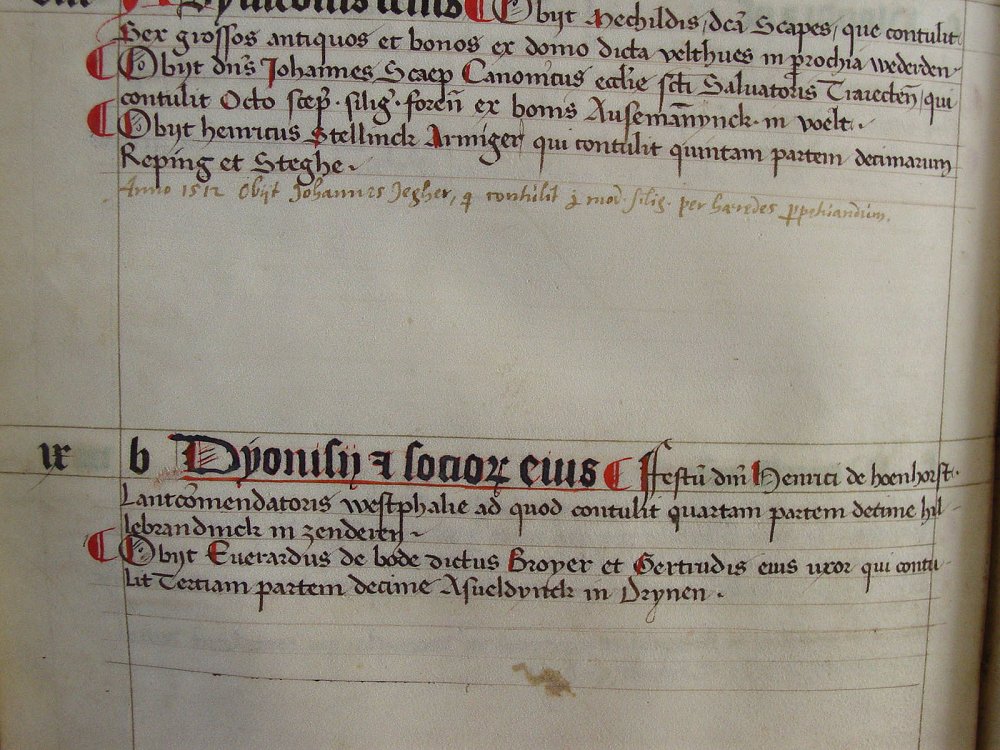 ¶ Obijt Mechildis, dc̄a Scapes, que contulit
Sex grossos antiquos et bonos ex domo dicta velthues in prochia wederden
¶ Obijt dn̄s Johannes Scaep Canonicus ecclie sc̄ti Salvatoris Traiecten̄, qui
contulit Octo scep̄. siliḡ. foren̄ ex bonis Ausemān̄ynck. in voelt.
¶ Obijt henricus Stellinck Armiger qui contulit quintam partem decimarum
Reping et Steghe.
Anno 1512 Obijt Johannes Jegher, q̄ contulit j mod̄. silig. per hæredes ꝑpetuandum.
ix b Dyonisij ⁊ socioꝝ eius ¶ Festū dn̄i Henrici de hoenhorst.
Lantcōmendatoris westphalie ad quod contulit quartam partem decime hil
lebrandinck in zenderen.
¶ Obijt Everardus de bode dictus Broyer et Gertrudis eius uxor qui contu
lit Tertiam partem decime Asueldvick in Drynen.